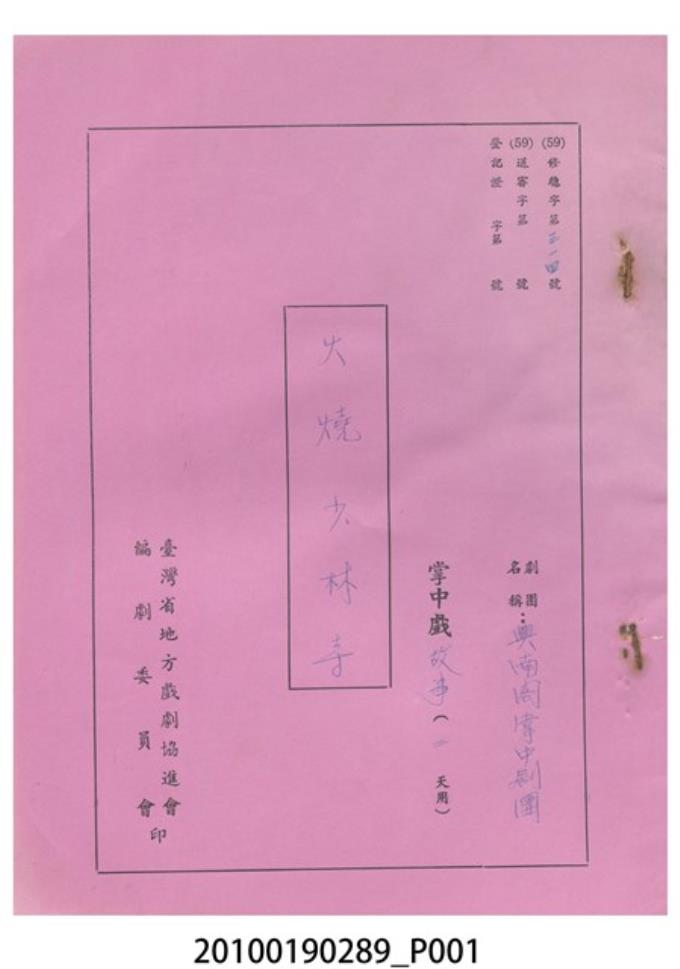 (59)修總字第三一四號
(59)送審字第 號
登記證 字第 號
劇團名稱：興南閣掌中劇團
掌中戲故事（一天用）
火燒少林寺
臺灣省地方戲劇協進會
編劇委員會印
20100190289_P001